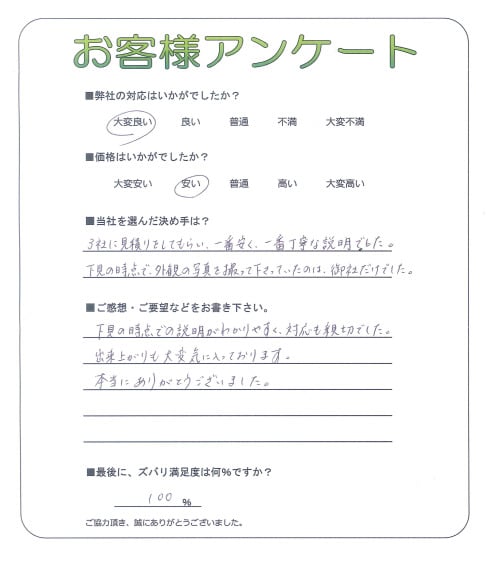 お客様アンケート
■弊社の対応はいかがでしたか？
大変良い 良い 普通 不満 大変不満
■価格はいかがでしたか？
大変安い 安い 普通 高い 大変高い
■当社を選んだ決め手は？
3社に見積りをしてもらい、一番安く、一番丁寧な説明でした。
下見の時点で、外観の写真を撮って下さっていたのは、御社だけでした。
■ご感想・ご要望などをお書き下さい。
下見の時点での説明がわかりやすく、対応も親切でした。
出来上がりも大変気に入っております。
本当にありがとうございました。
■最後に、ズバリ満足度は何%ですか？
100 %
ご協力頂き、誠にありがとうございました。